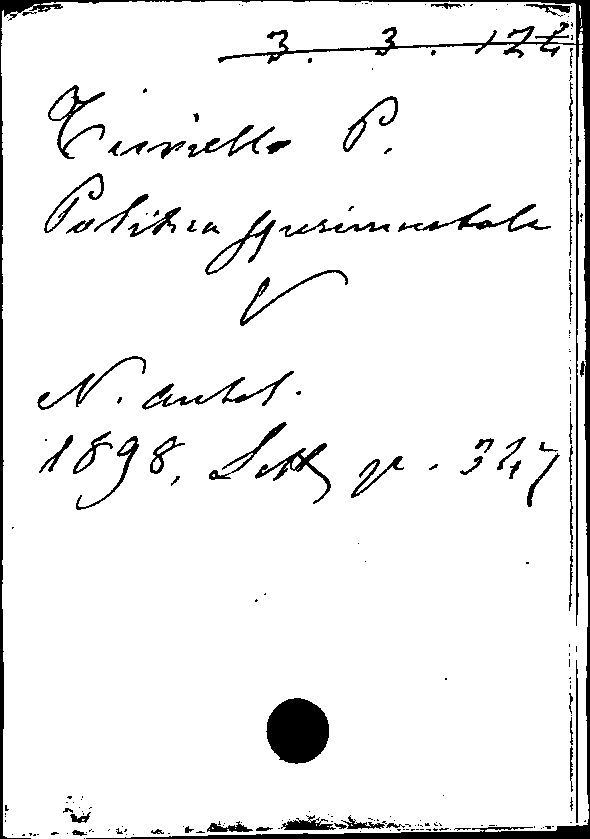 3. 3. 122
Turiello P.
Politica sperimentale
V
N. Antol.
1898, Sett. p. 347